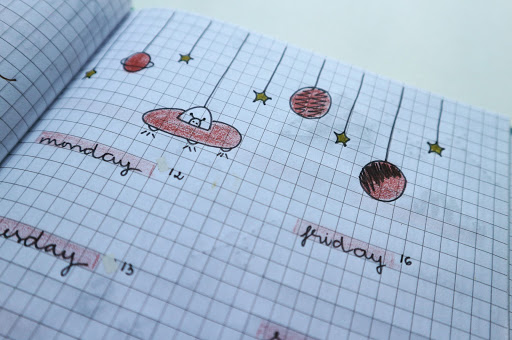 monday 12
friday 16
usday 13